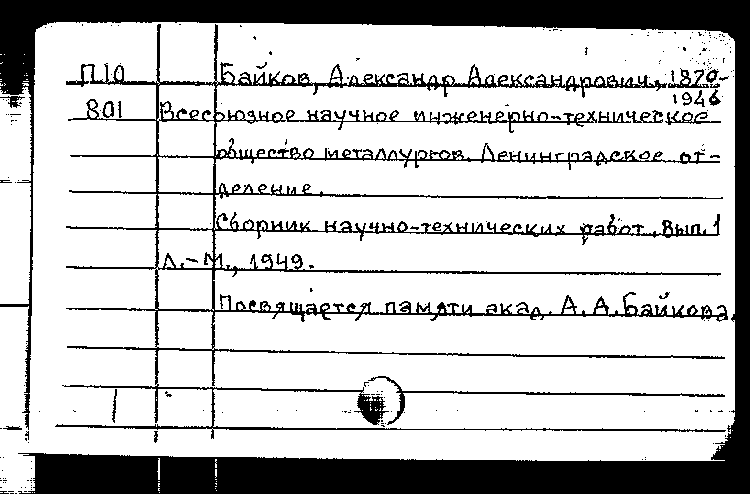 П10 Байков, Александр Александрович, 1870-
1946
801 Всесоюзное научное инженерно-техническое
общество металлургов. Ленинградское от-
деление.
Сборник научно-технических работ. Вып. 1
Л.-М., 1949.
Посвящается памяти акад. А. А. Байкова.